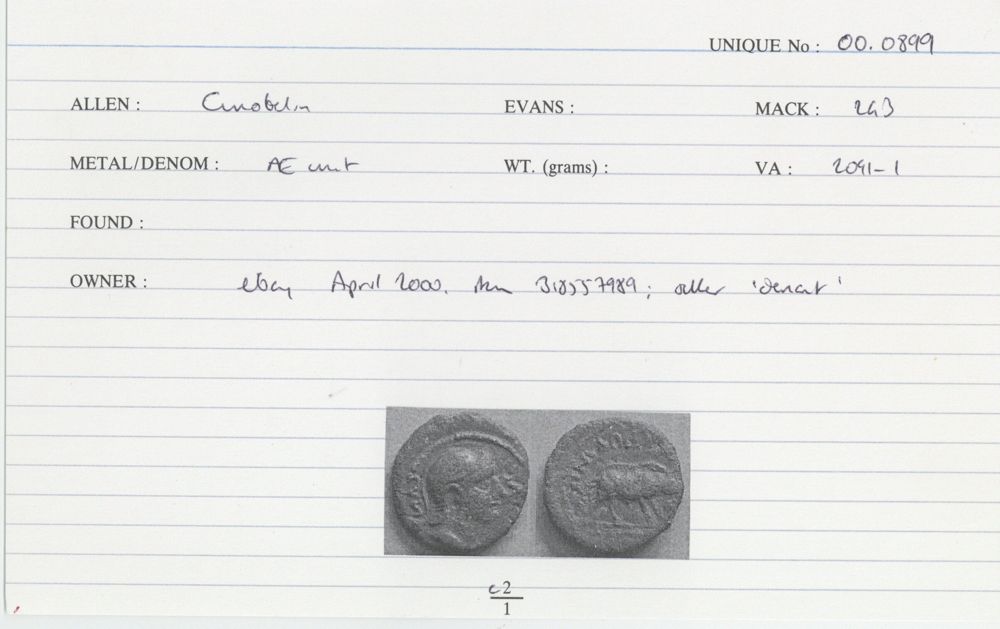 UNIQUE No : 00.0899
ALLEN : Cunobelin EVANS : MACK : 243
METAL/DENOM : AE unit WT. (grams) : VA : 2091-1
FOUND :
OWNER : ebay April 2000. Item 318557989; seller
c2
1